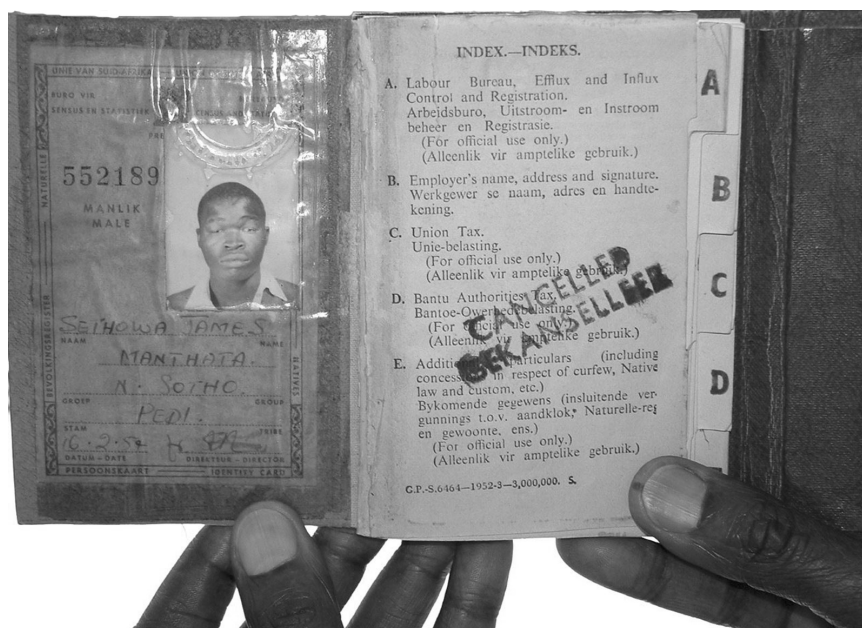 UNIE VAN SUID-AFRIKA
BURO VIR
SENSUS EN STATISTIEK
CENSUS AND
552189
MANLIK
MALE
NATURELLE
BEVOLKINGSREGISTER
NATIVES
SETHOWA JAMES
NAAM NAME
MANTHATA.
N. SOTHO.
GROEP GROUP
PEDI.
STAM TRIBE
16.2.54
DATUM - DATE DIREKTEUR - DIRECTOR
PERSOONSKAART IDENTITY CARD
INDEX.—INDEKS.
A. Labour Bureau, Efflux and Influx
Control and Registration.
Arbeidsburo, Uitstroom- en Instroom
beheer en Registrasie.
(For official use only.)
(Alleenlik vir amptelike gebruik.)
B. Employer's name, address and signature.
Werkgewer se naam, adres en handte-
kening.
C. Union Tax.
Unie-belasting.
(For official use only.)
(Alleenlik vir amptelike gebruik.)
D. Bantu Authorities Tax.
Bantoe-Owerhedebelasting.
(For official use only.)
(Alleenlik vir amptelike gebruik.)
CANCELLED
GEKANSELLEER
E. Additional particulars (including
concessions in respect of curfew, Native
law and custom, etc.)
Bykomende gegewens (insluitende ver-
gunnings t.o.v. aandklok, Naturelle-reg
en gewoonte, ens.)
(For official use only.)
(Alleenlik vir amptelike gebruik.)
G.P.-S.6464—1952-3—3,000,000. S.
A
B
C
D